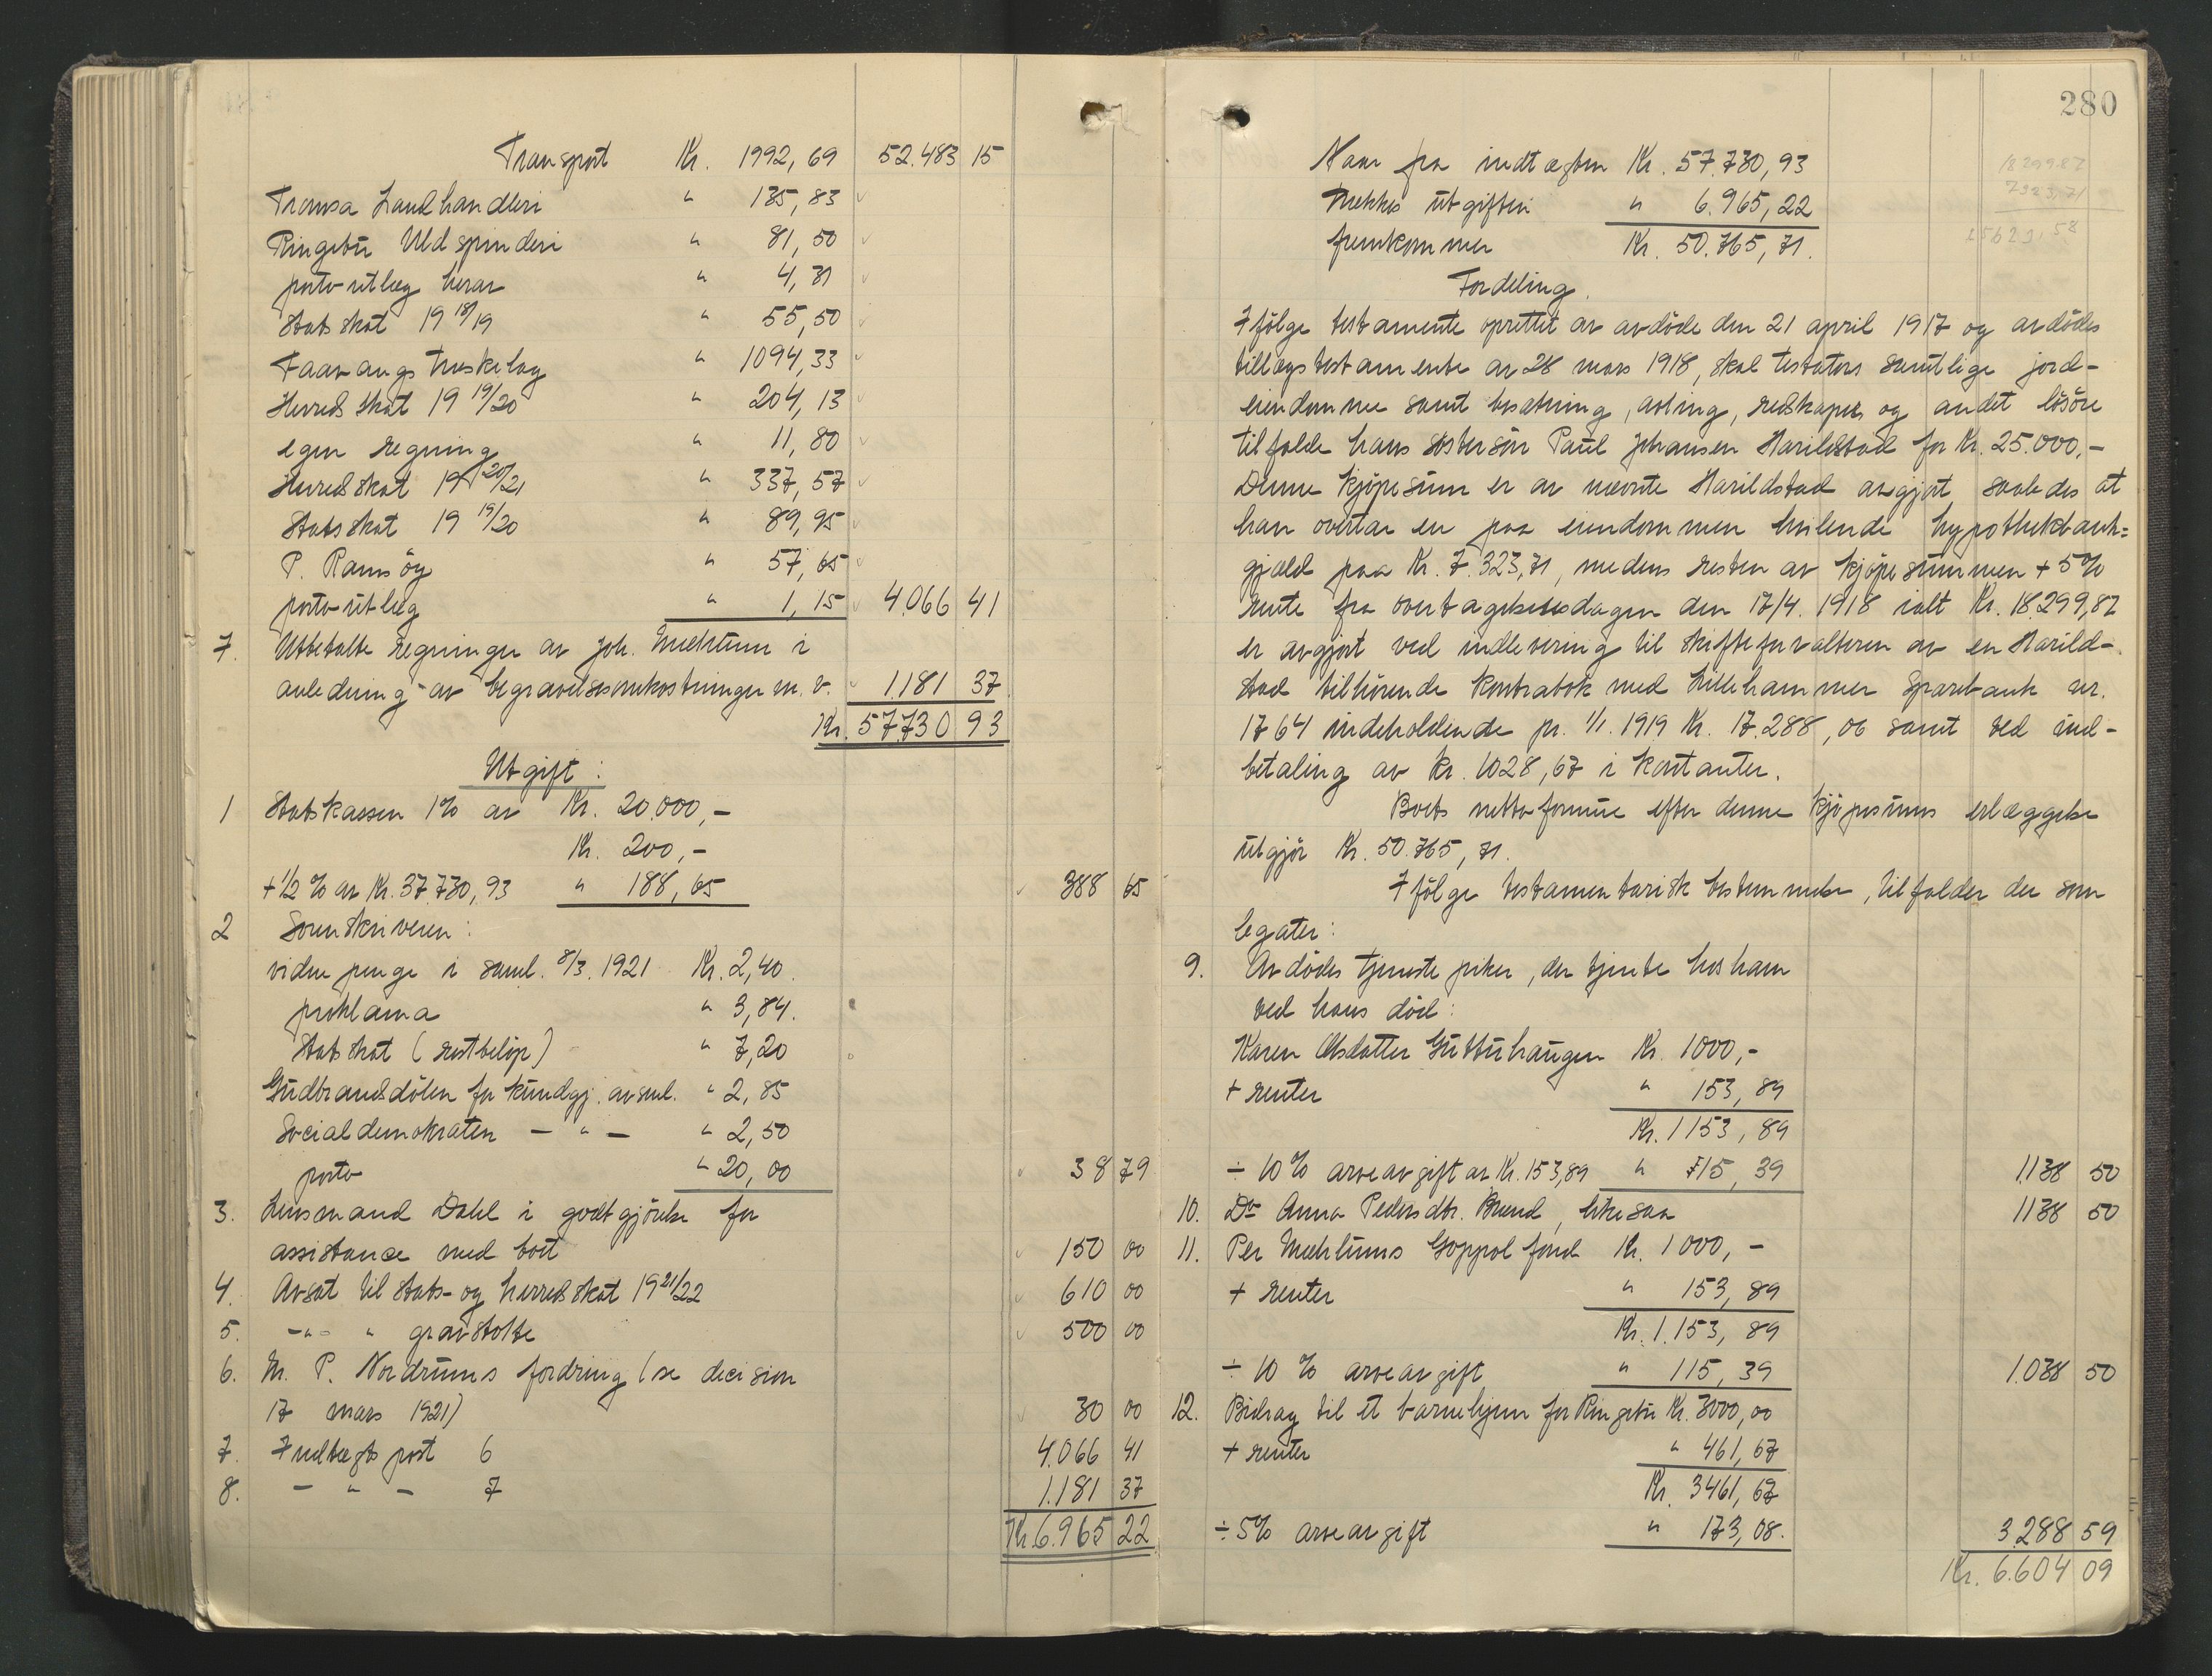 Transport Kr. 1992,69 52.483 15
Tromsa Landhandleri " 135,83
Ringebu Uldspinderi " 81,50
porto utlæg herav " 4,31
Statsskat 19 18/19 " 55,50
Faavangs træskelag " 1094,33
Herredskat 19 19/20 " 204,13
egen regning " 11,80
Herredskat 19 20/21 " 337,57
Statsskat 19 19/20 " 89,95
P. Ramsöy " 57,65
porto utlæg " 1,15 4.066 41
7. Utbetalte regninger av Joh. Mæhlum i
anledning av begravelsesomkostninger m.v. 1.181 37
Kr. 57.730 93
Utgift:
1 Statskassen 1% av Kr. 20.000,-
Kr. 200,-
+ 1/2 % av Kr. 37.730,93 " 188,65 388 65
2 Sorenskriveren:
vidnepenge i saml. 8/3. 1921 Kr. 2,40.
proklama " 3,84.
Statsskat (restbelöp) " 7,20
Gudbrandsdölen for kundgj. av saml. " 2,85
Socialdemokraten - " - " 2,50
porto " 20,00 38 79
3. Lensmand Dahl i godtgjörelse for
assistance med boet 150 00
4. Avsat til stats- og herredskat 19 21/22 610 00
5. -"- " gravstötte 500 00
6. M. P. Nordrums fordring (se decision
17 mars 1921) 30 00
7. Indtægts post 6 4.066 41
8. - " - 7 1.181 37
Kr. 6.965 22
280
18299.82
7323,71
25623,58
Naar fra indtægten Kr. 57.730,93
trækkes utgiften " 6.965,22
fremkommer Kr. 50.765,71.
Fordeling.
Ifölge testamente oprettet av avdöde den 21 april 1917 og avdödes
tillægstestamente av 28 mars 1918, skal testators samtlige jord-
eiendomme samt besætning, avling, redskaper og andet lösöre
tilfalde hans söstersön Paul Johansen Harildstad for Kr. 25.000,-
Denne kjöpesum er av nævnte Harildstad avgjort saaledes at
han overtar en paa eiendommen hvilende hypothekbank-
gjæld paa Kr. 7.323,71, medens resten av kjöpesummen + 5%
rente fra overtagelsesdagen den 17/4. 1918 ialt Kr. 18.299,82
er avgjort ved indlevering til skifteforvalteren av en Harild-
stad tilhörende kontrabok med Lillehammer Sparebank nr.
1764 indeholdende pr. 1/1. 1919 Kr. 17.288,06 samt ved ind-
betaling av Kr. 1028,67 i kontanter.
Boets nettoformue efter denne kjöpesums erlæggelse
utgjör Kr. 50.765,71.
Ifölge testamentarisk bestemmelse, tilfalder der som
legater:
9. Avdödes tjenestepiker, der tjente hos ham
ved hans död:
Karen Olsdatter Gutuhaugen Kr. 1000,-
+ renter " 153,89
Kr. 1153,89
÷ 10% arveavgift av Kr. 153,89 " 15,39 1.138 50
10. Do Anna Pedersdtr. Brænd, likesaa 1138 50
11. Per Mæhlums Goppol fond Kr. 1000,-
+ renter " 153,89
Kr. 1.153,89
÷ 10 % arveavgift " 115,39 1.038 50
12. Bidrag til et barnehjem for Ringebu Kr. 3000,00
+ renter " 461,67
Kr. 3461,67
÷ 5% arveavgift " 173,08. 3.288 59
Kr. 6.604 09